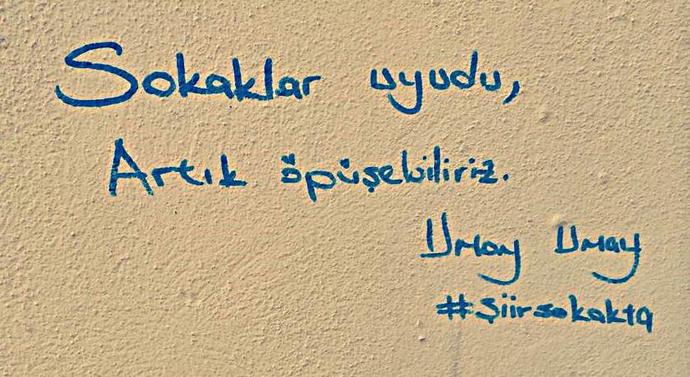 Sokaklar uyudu,
Artık öpüşebiliriz.
Umay Umay
#şiirsokakta